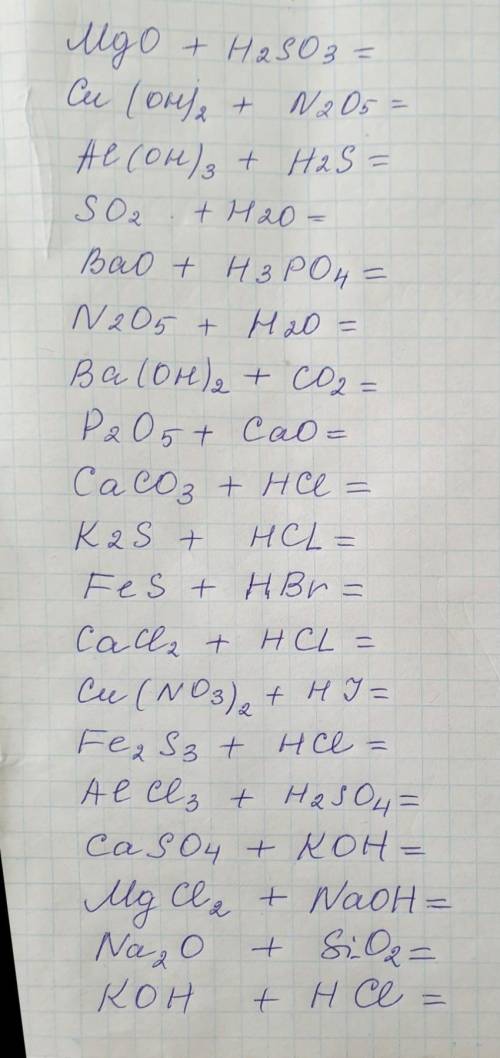 MgO + H2SO3 =
Cu(OH)2 + N2O5 =
Al(OH)3 + H2S =
SO2 + H2O =
BaO + H3PO4 =
N2O5 + H2O =
Ba(OH)2 + CO2 =
P2O5 + CaO =
CaCO3 + HCl =
K2S + HCL =
FeS + HBr =
CaCl2 + HCL =
Cu(NO3)2 + HJ =
Fe2S3 + HCl =
AlCl3 + H2SO4 =
CaSO4 + KOH =
MgCl2 + NaOH =
Na2O + SiO2 =
KOH + HCl =